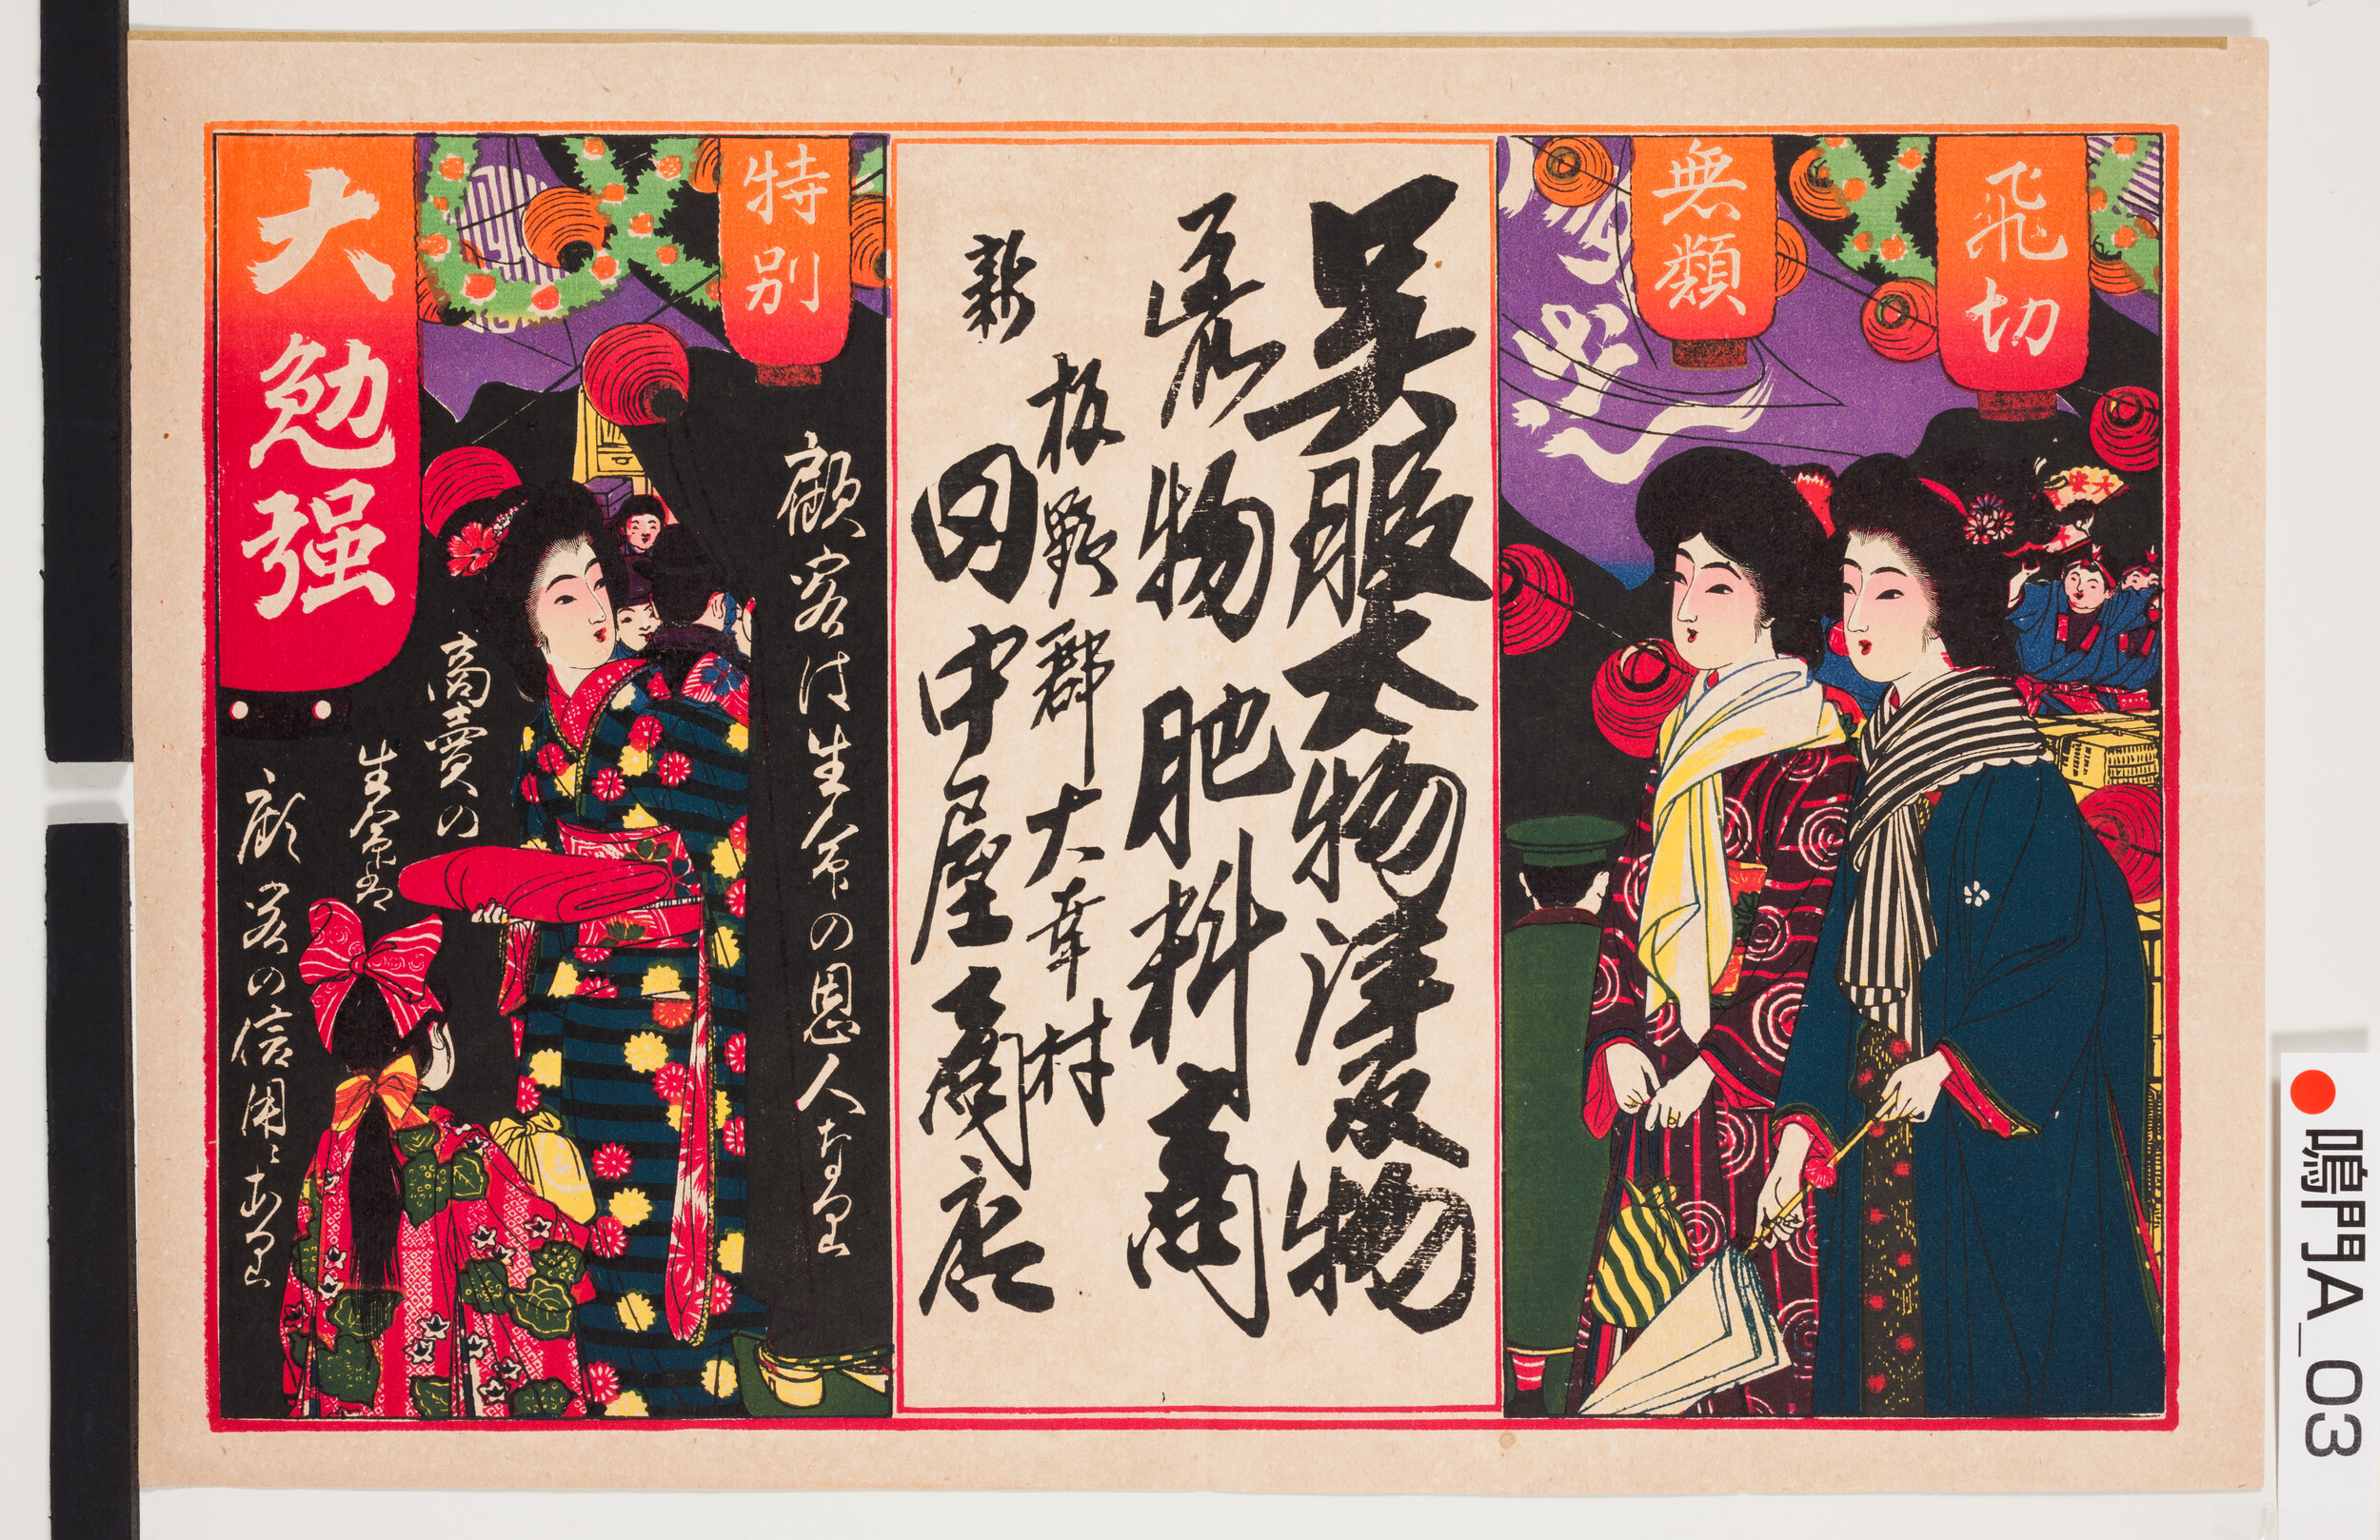 飛切
無類
大安
呉服太物洋反物
荒物肥料商
板野郡大幸村
新田中屋商店
特別
顧客は生命の恩人なり
大勉强
商賣の
生命は
顧客の信用ニあり
鳴門A_03